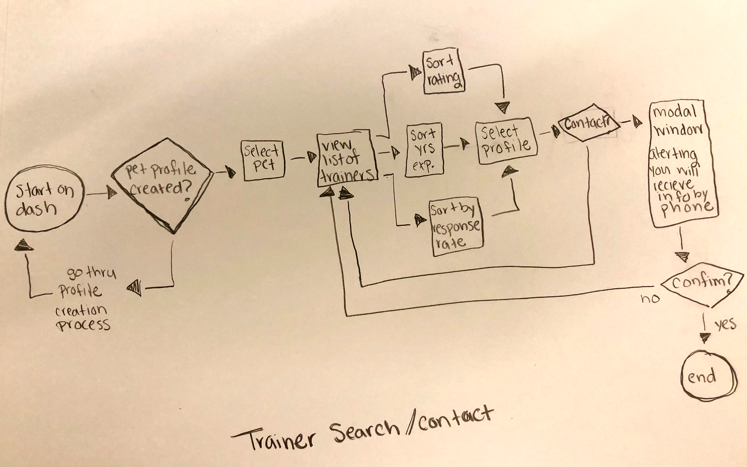 Start on
dash
pet profile
created?
go thru
profile
creation
process
Select
pet
view
list of
trainers
Sort
rating
Sort
yrs
exp.
Sort by
response
rate
Select
profile
Contact?
modal
window
alerting
you will
recieve
info by
phone
Confim?
no
yes
end
Trainer Search/contact